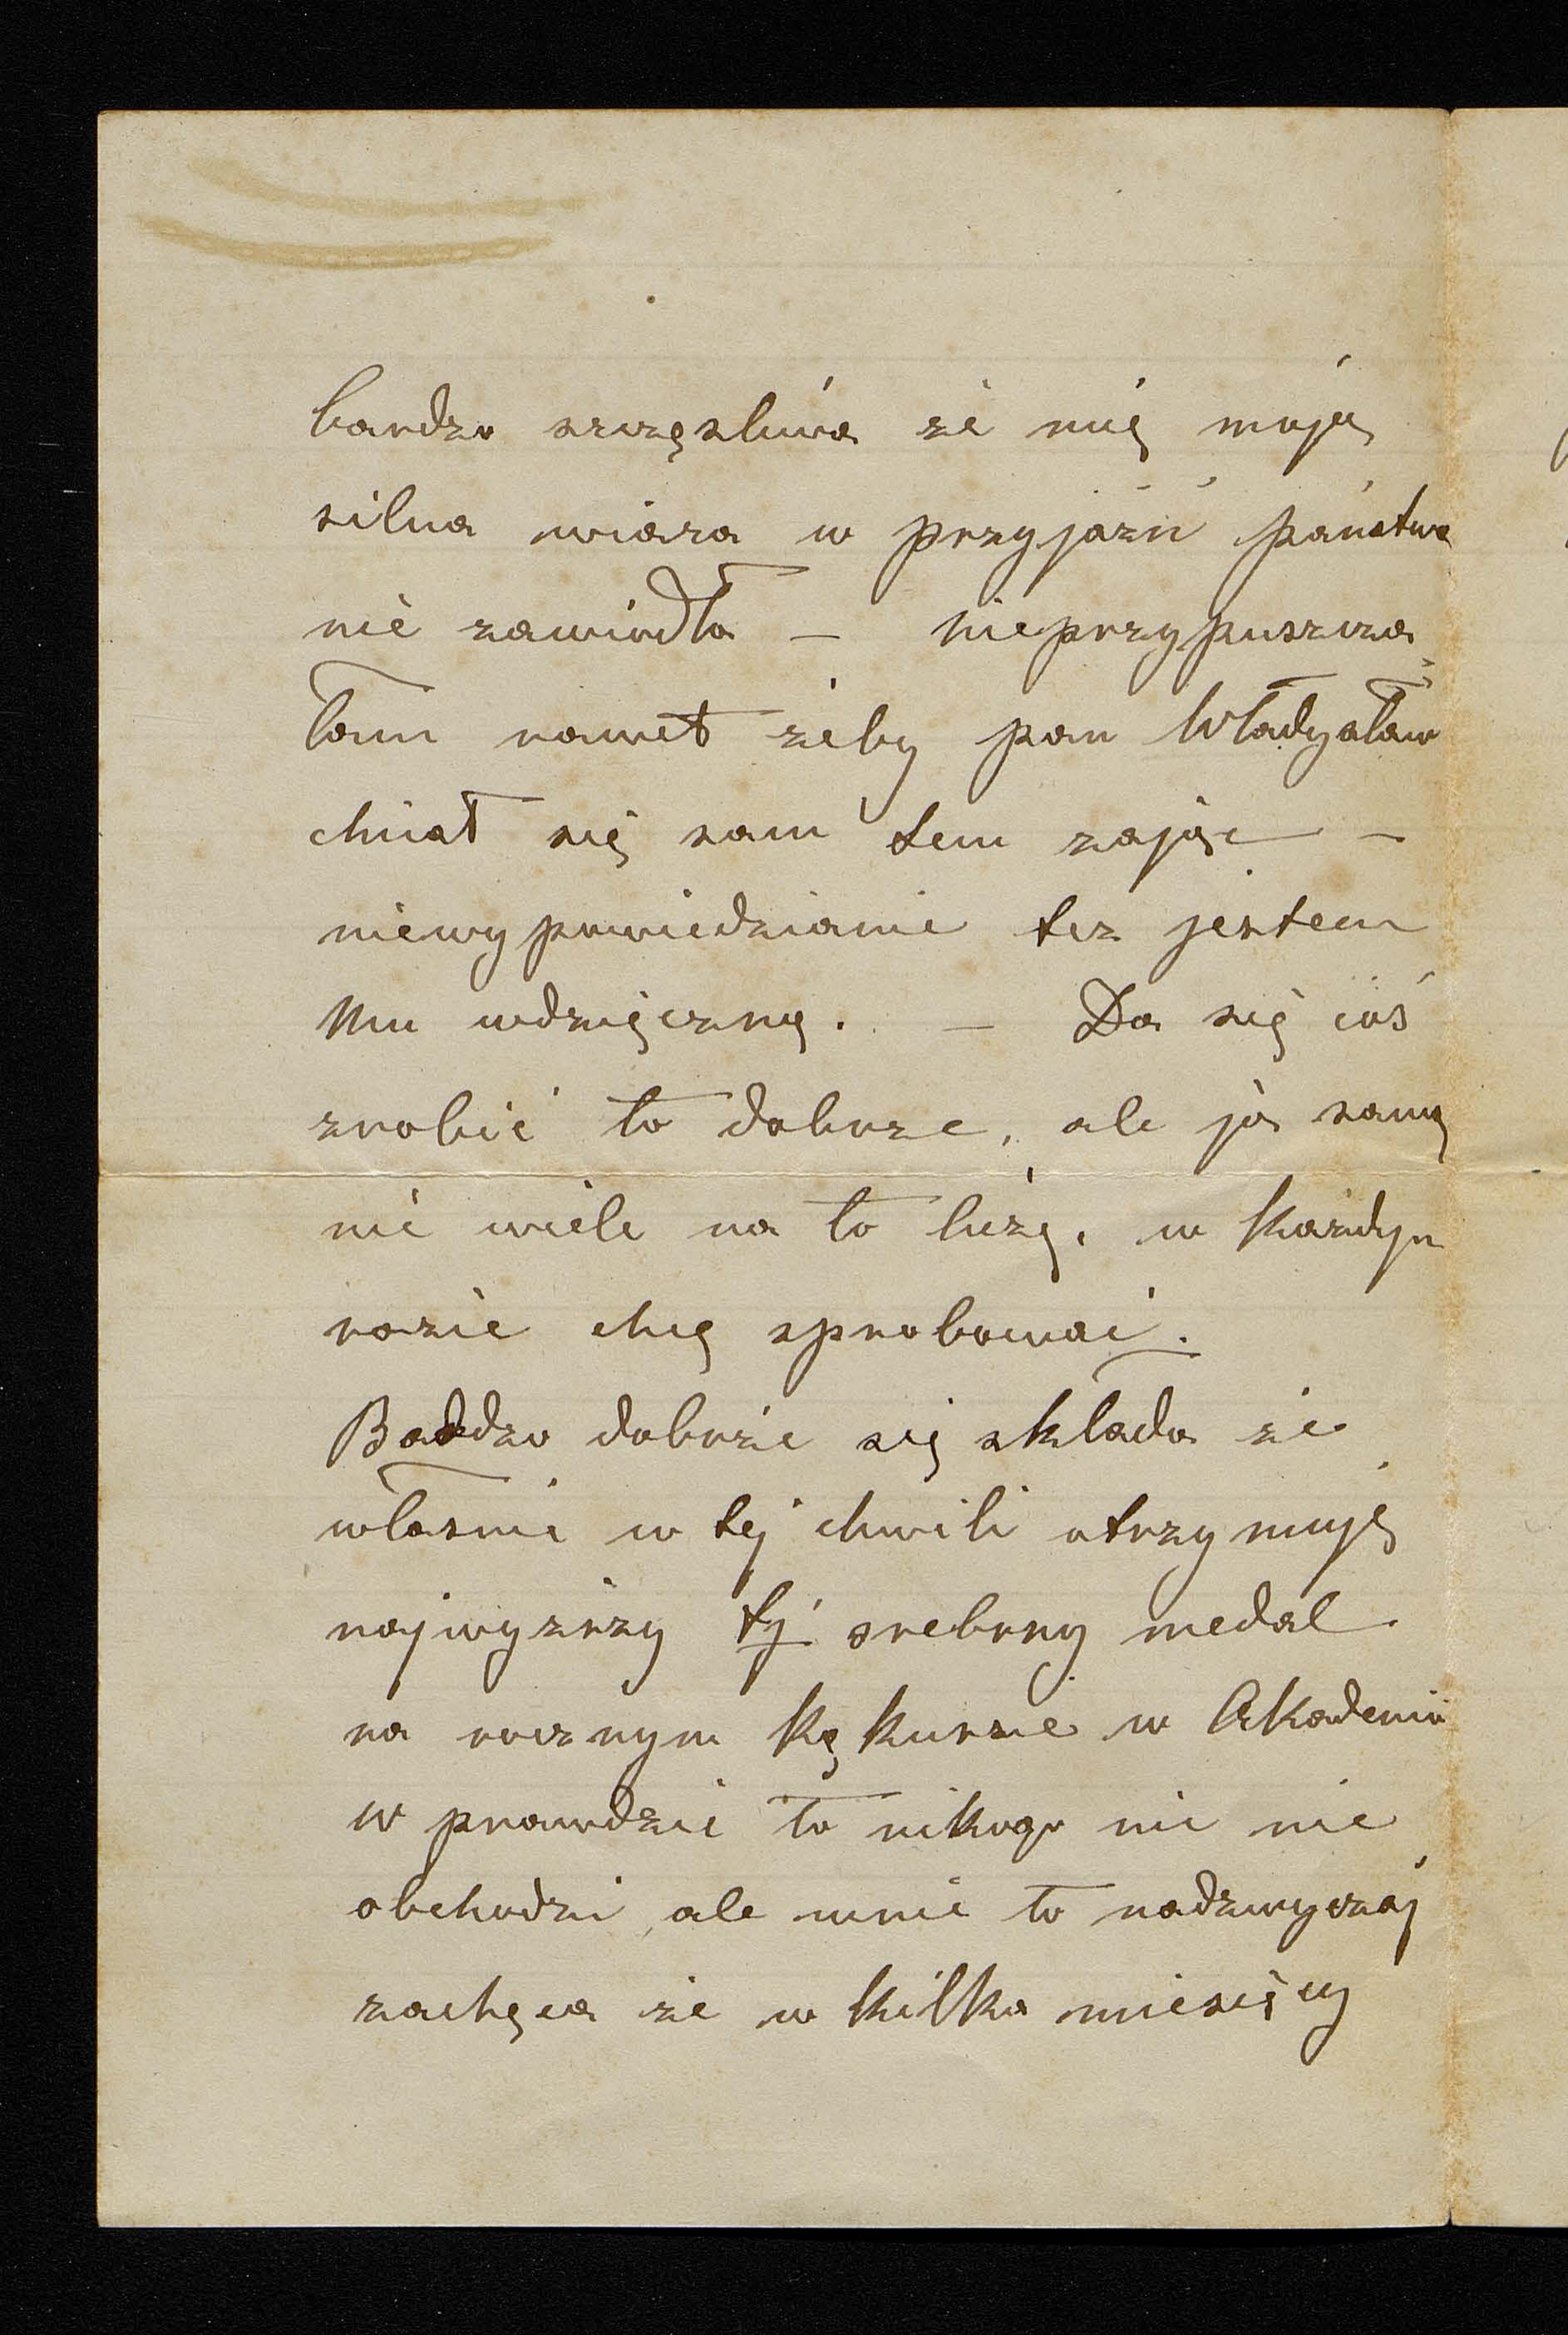 bardzo szczęsliwa że mię moja
silna wiara w przyjaźń państwa
nie zawiodła — nieprzypuszcza
łam nawet żeby pan Władysław
chciał się sam tem zając —
niewypowiedzianie tez jestem
Mu wdzięczną. — Da się coś
zrobić to dobrze, ale ja samą
nie wiele na to liczę, w każdym
razie chcę sprobować.
Bardzo dobrze się składa że
własnie w tej chwili otrzymuję
najwyższy tj srebrny medal
na rocznym kąkursie w Akademii
w prawdzie to nikogo nic nie
obchodzi ale mnie to nadzwyczaj
zachęca że w kilka miesięcy